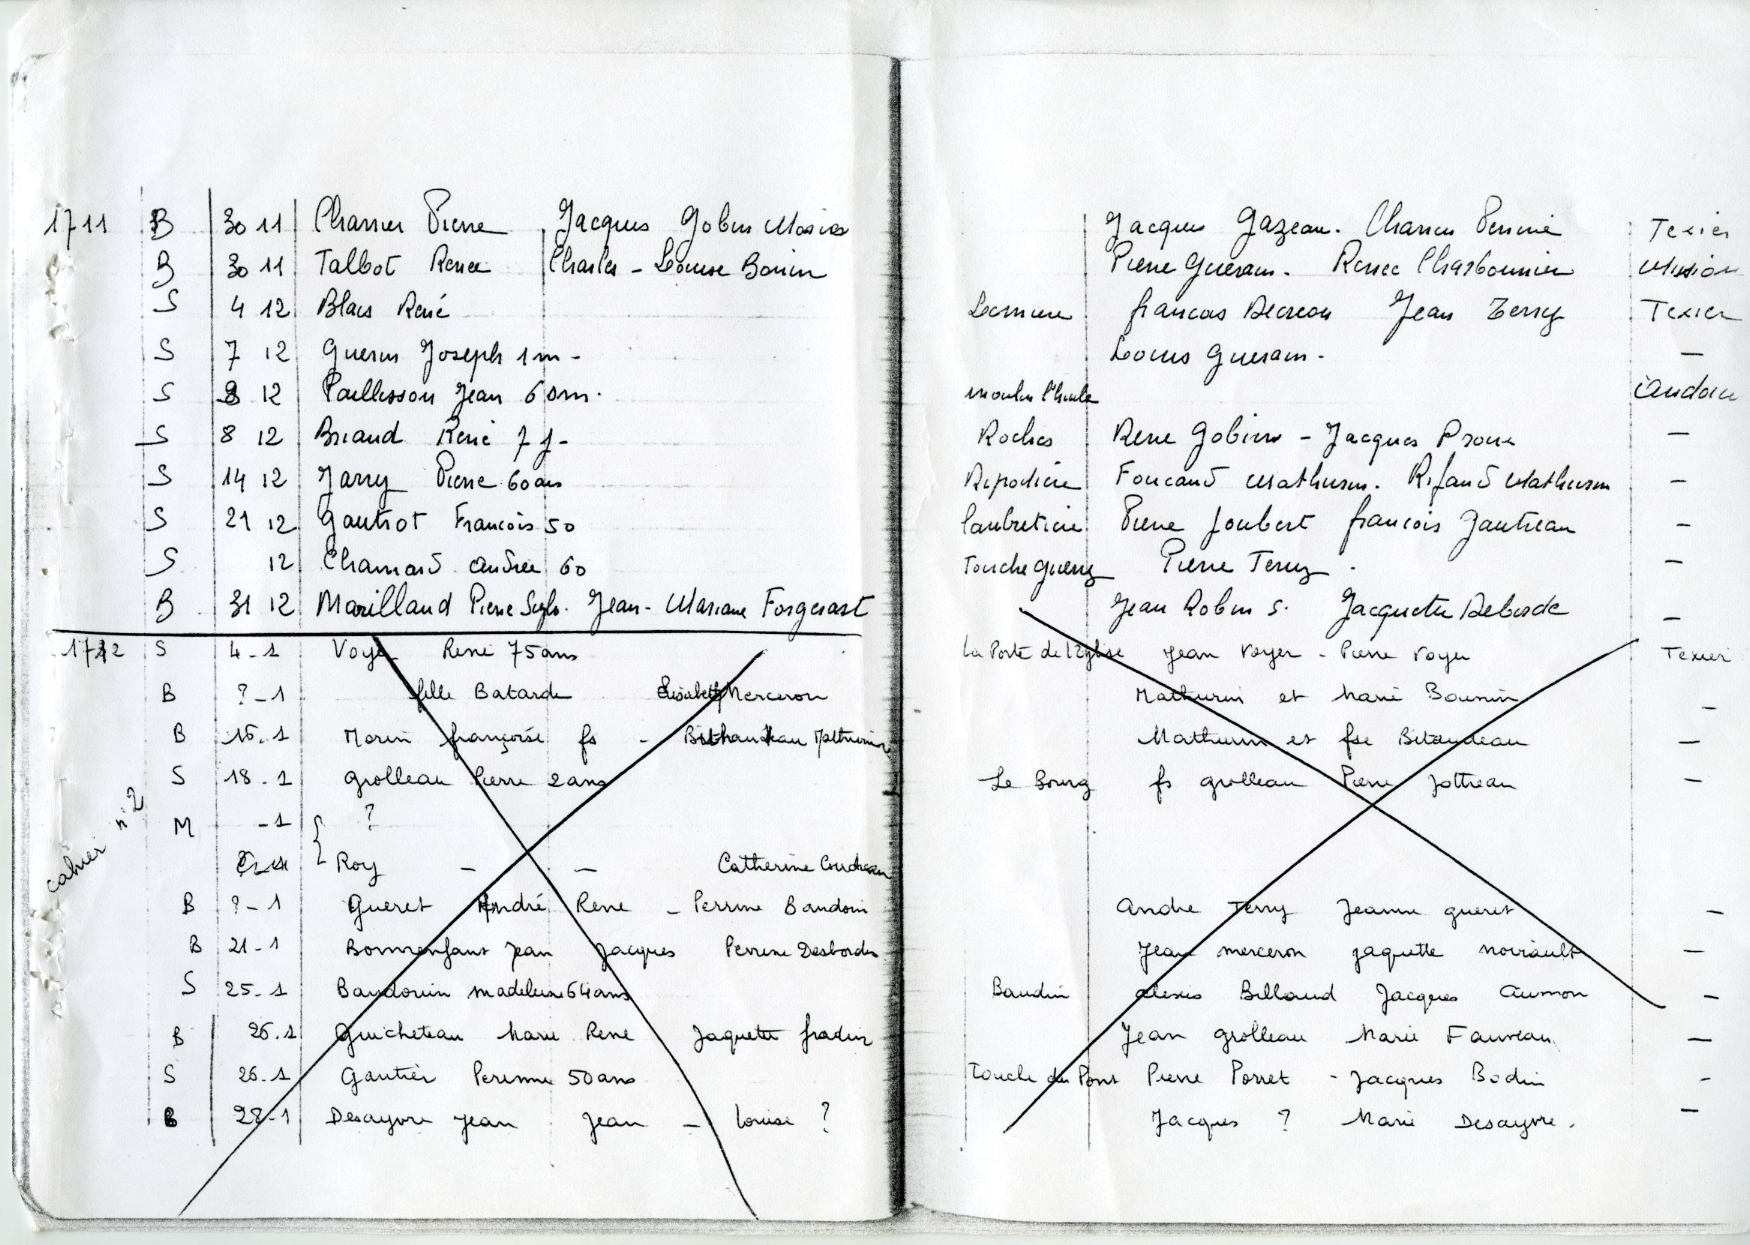 1711 B 30 11 Charrier Pierre Jacques Gobin Marie Jacques Gazeau. Charrier Perrine Texier
B 30 11 Talbot Renee Charles - Louise Bonin Pierre Guerain. Renee Charbonnier
S 4 12 Blais René francois Jean Terry Texier
S 7 12 Guerin Joseph 1m - Louis Guerain. —
S 8 12 Paillesson Jean 60m. moulin
S 8 12 Briaud René 7 j - Roches Rene Gobin - Jacques —
S 14 12 Jarry Pierre 60 ans Foucaud Mathurin. Rifaud Mathurin —
S 21 12 Gautrot Francois 50 Pierre Joubert francois Gautreau —
S 12 Chamard Andrée 60 Touche Guerry Pierre Terry. —
B 31 12 Marillaud Pierre Sylv. Jean - Mariane Forgerast Jean Robin S. Jacquette Deborde —
1712 S 4-1 Voyer René 75 ans La Porte de l'Eglise Jean Voyer - Pierre Voyer Texier
B ?-1 fille Batarde Elisabeth Merceron Mathurin et Marie Bounin —
B 16.1 Morin françoise fs - Mathurin et fse Bitaudeau —
S 18-1 grolleau Pierre 2 ans Le Bourg fs grolleau Pierre Jottreau —
cahier n°2
M -1 ?
Roy — — Catherine
B ?-1 Gueret André Rene - Perrine Baudoin Andre Terry Jeanne gueret —
B 21-1 Bonnenfant Jean Jacques Perrine Desbordes Jean merceron jaquette noirault —
S 25-1 Baudouin madeleine 64 ans Baudin alexis Billaud Jacques Aumon —
B 26.1 Guicheteau Marie Rene Jaquette fradin Jean grolleau Marie Fauveau —
S 26.1 Gautier Perenne 50 ans Touche du Pont Pierre Porret - Jacques Bodin -
B 28-1 Desayvre Jean Jean - louise ? Jacques ? Marie Desayvre. —